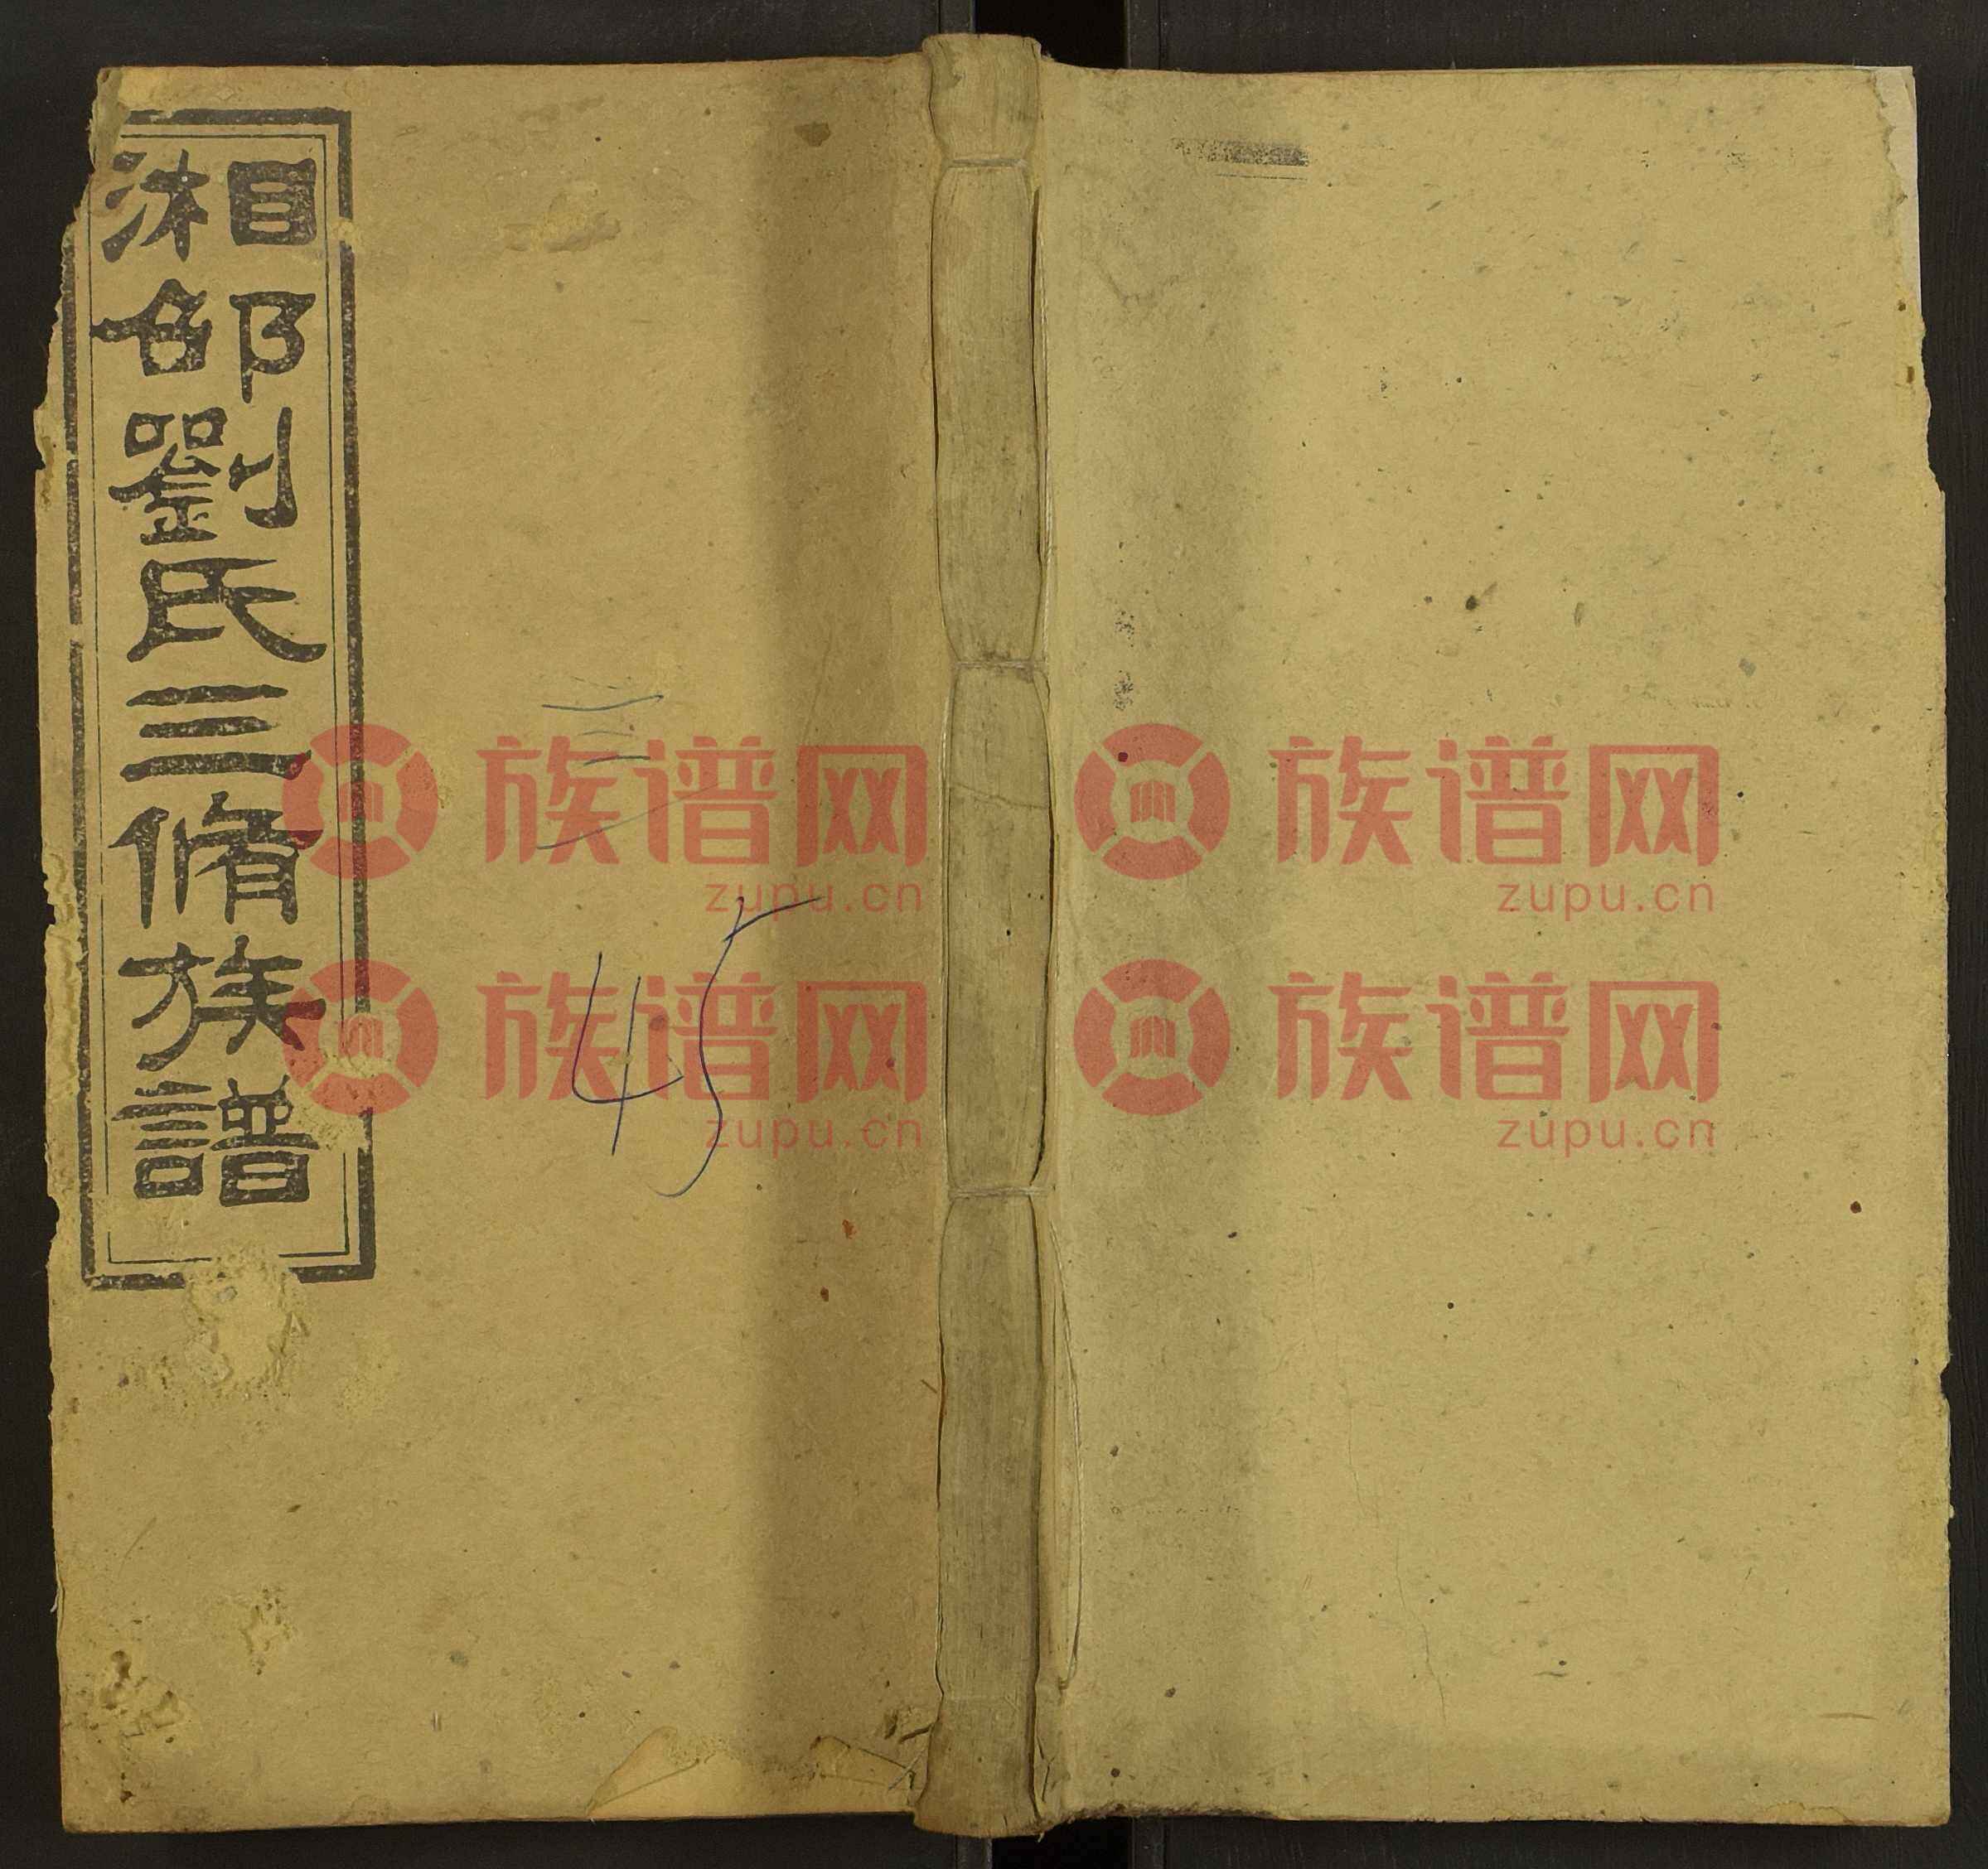 湘邵劉氏三脩族譜
三
45
族谱网 族谱网
zupu.cn zupu.cn
族谱网 族谱网
zupu.cn zupu.cn